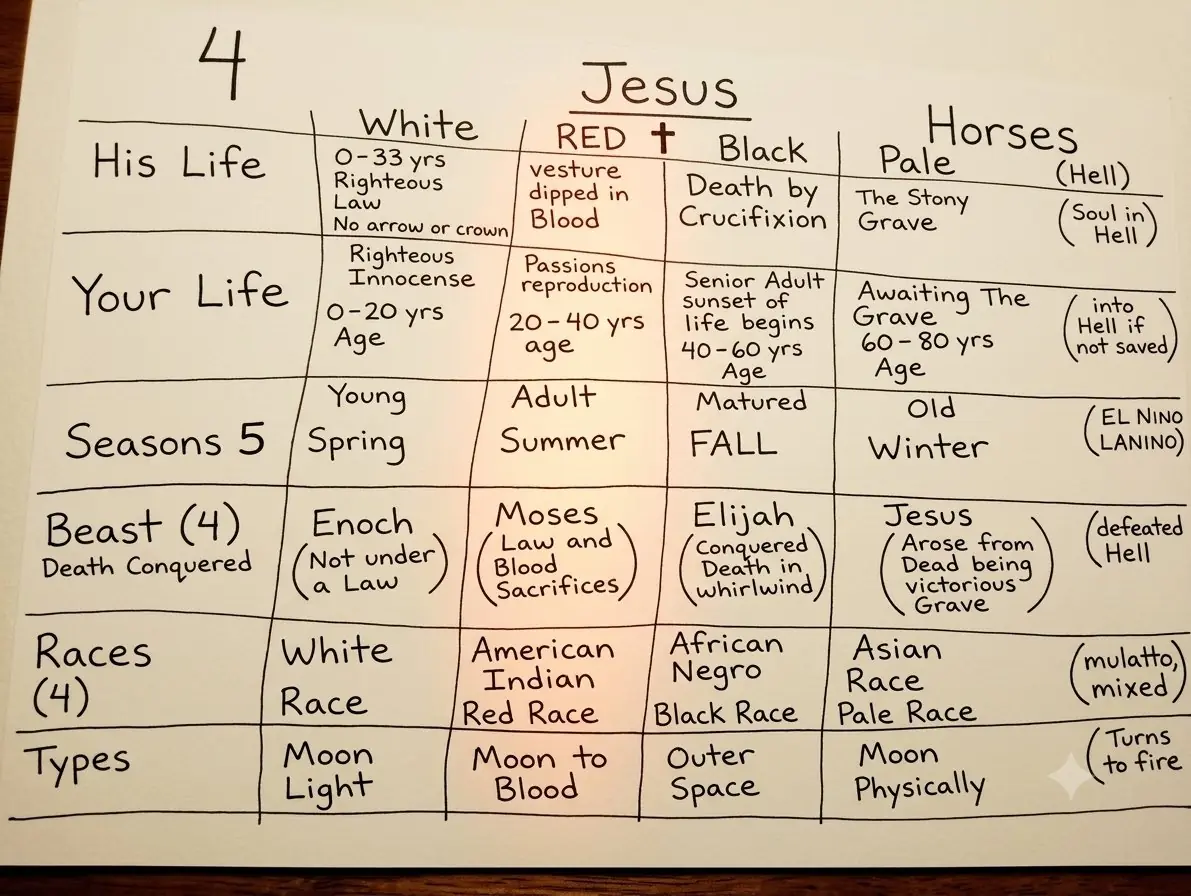 4
Jesus
White
RED ✝ Black
Horses
Pale (Hell)
His Life
0-33 yrs
Righteous
Law
No arrow or crown
vesture
dipped in
Blood
Death by
Crucifixion
The Stony
Grave
(Soul in
Hell)
Your Life
Righteous
Innocense
0-20 yrs
Age
Passions
reproduction
20-40 yrs
age
Senior Adult
sunset of
life begins
40-60 yrs
Age
Awaiting The
Grave
60-80 yrs
Age
(into
Hell if
not saved)
Seasons 5
Young
Spring
Adult
Summer
Matured
FALL
Old
Winter
(EL NINO
LANINO)
Beast (4)
Death Conquered
Enoch
(Not under
a Law)
Moses
(Law and
Blood
Sacrifices)
Elijah
(Conquered
Death in
whirlwind)
Jesus
(Arose from
Dead being
victorious
Grave)
(defeated
Hell
Races
(4)
White
Race
American
Indian
Red Race
African
Negro
Black Race
Asian
Race
Pale Race
(mulatto,
mixed)
Types
Moon
Light
Moon to
Blood
Outer
Space
Moon
Physically
(Turns
to fire